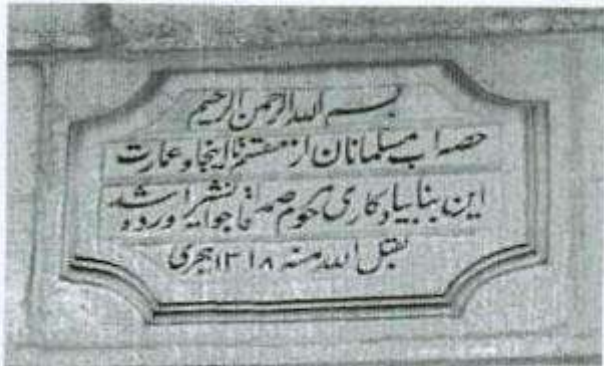 بسم الله الرحمن الرحیم
حصه اب مسلمانان از اینجا و عمارت
این بنا بیادکاری مرحوم شد
تقبل الله منه ۱۳۱۸ هجری